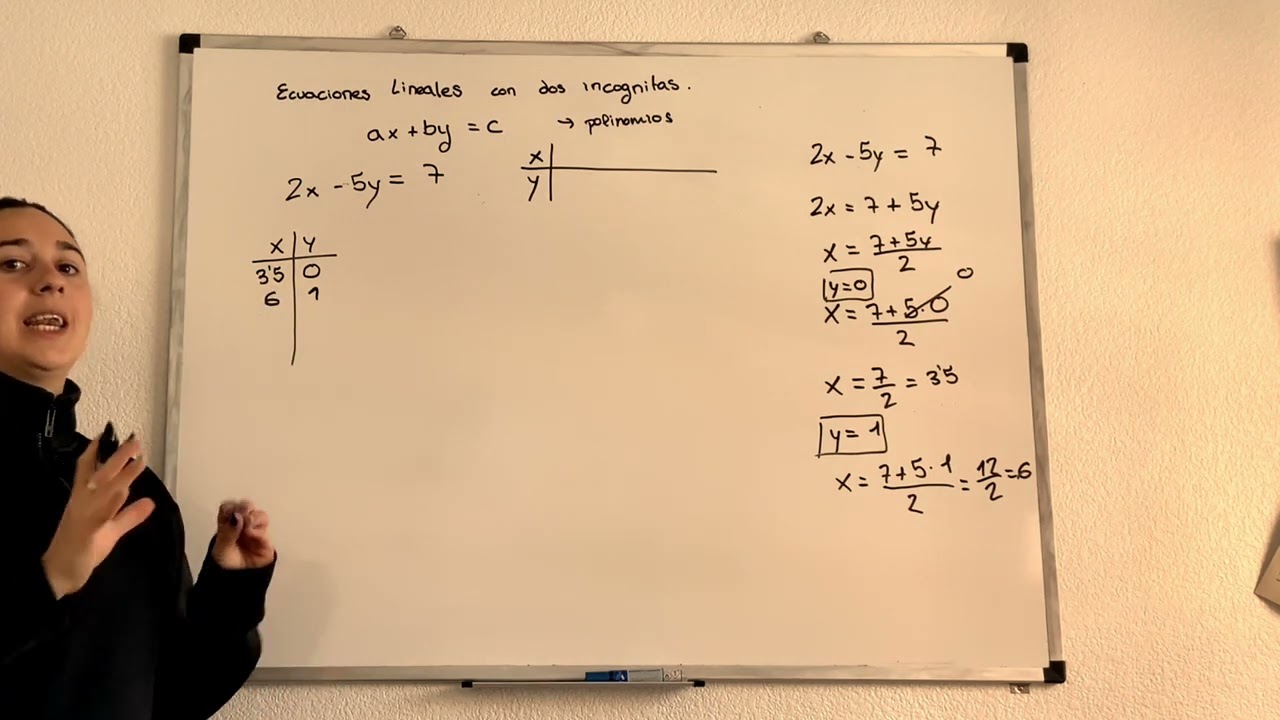 Ecuaciones Lineales con dos incognitas.
ax + by = c → polinomios
2x - 5y = 7
x
y
x y
3'5 0
6 1
2x - 5y = 7
2x = 7 + 5y
x = 7+5y/2
y=0
x = 7+5·0/2 0
x = 7/2 = 3'5
y = 1
x = 7+5·1/2 = 12/2 = 6